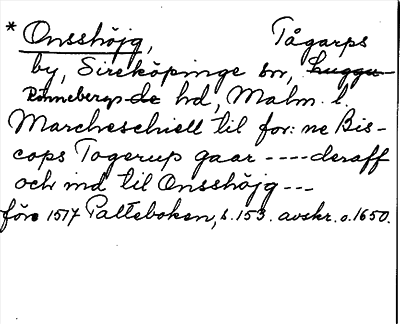 * Onsshöjg, Tågarps
by, Sireköpinge sn, Luggu-
Rönnebergs de hd, Malm. l.
Marcheschiell til for: ne Bis-
cops Togerup gaar ----deraff
och ind til Onsshöjg ---
före 1517 Palteboken, s. 153. avskr. o. 1650.